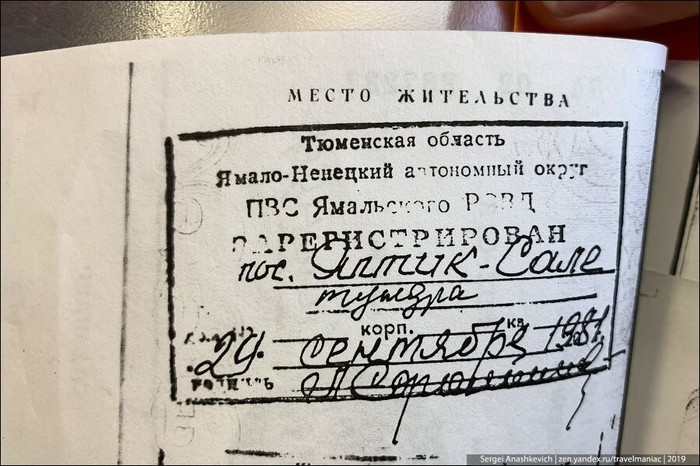 МЕСТО ЖИТЕЛЬСТВА
Тюменская область
Ямало-Ненецкий автономный округ
ПВС Ямальского РОВД
ЗАРЕГИСТРИРОВАН
пос. Яптик-Сале
тундра
корп. кв
29 сентября 1981
Sergei Anashkevich | zen.yandex.ru/travelmaniac | 2019